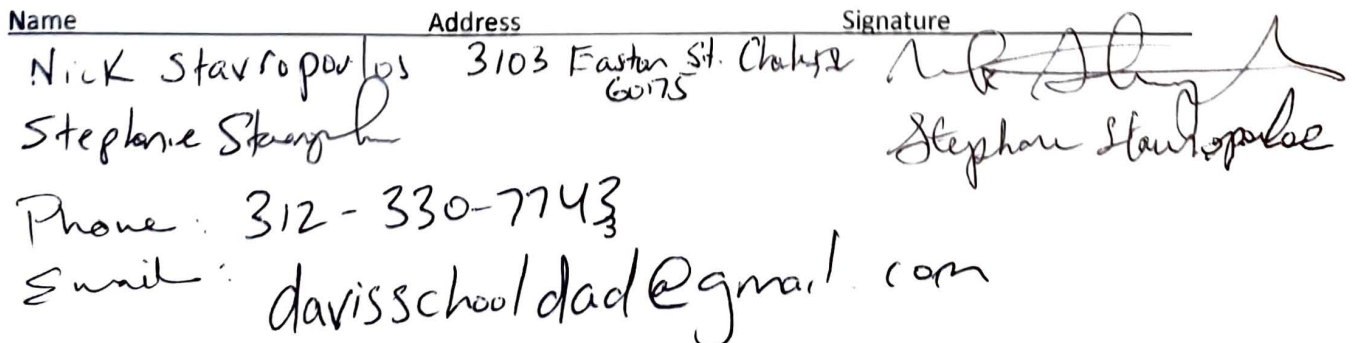 Name Address Signature
Nick Stavropoulos 3103 Easton St. Charles
60175
Stephanie Stavropoulos Stephanie Stavropoulos
Phone: 312-330-7743
Email: davisschooldad@gmail.com